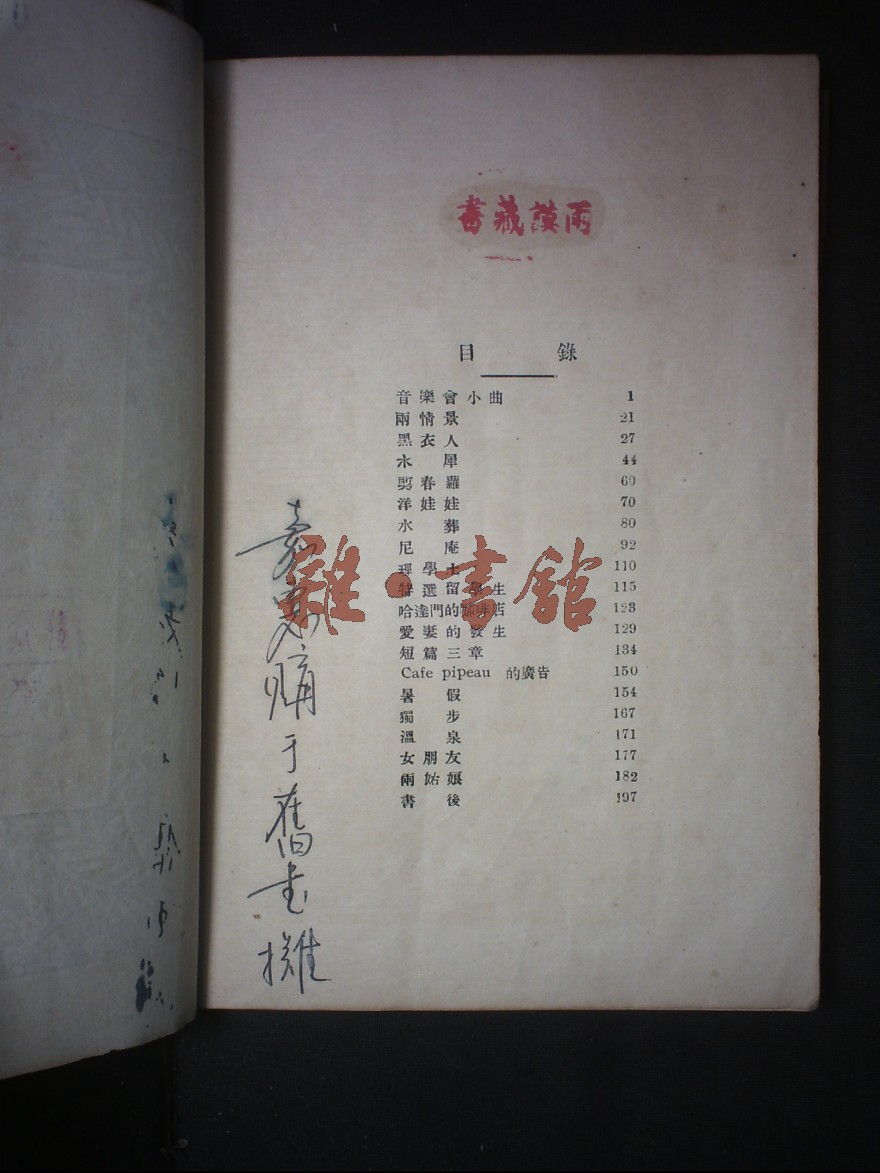 雨謨藏書
目錄
音樂會小曲 1
兩情景 21
黑衣人 27
木犀 44
剪春蘿 60
洋娃娃 70
水葬 80
尼庵 92
理學士 110
特選留學生 115
哈達門的咖啡店 123
愛妻的發生 129
短篇三章 134
Cafe pipeau 的廣告 150
暑假 154
獨步 167
溫泉 171
女朋友 177
兩姑娘 182
書後 197
購于舊書攤
雜·書館